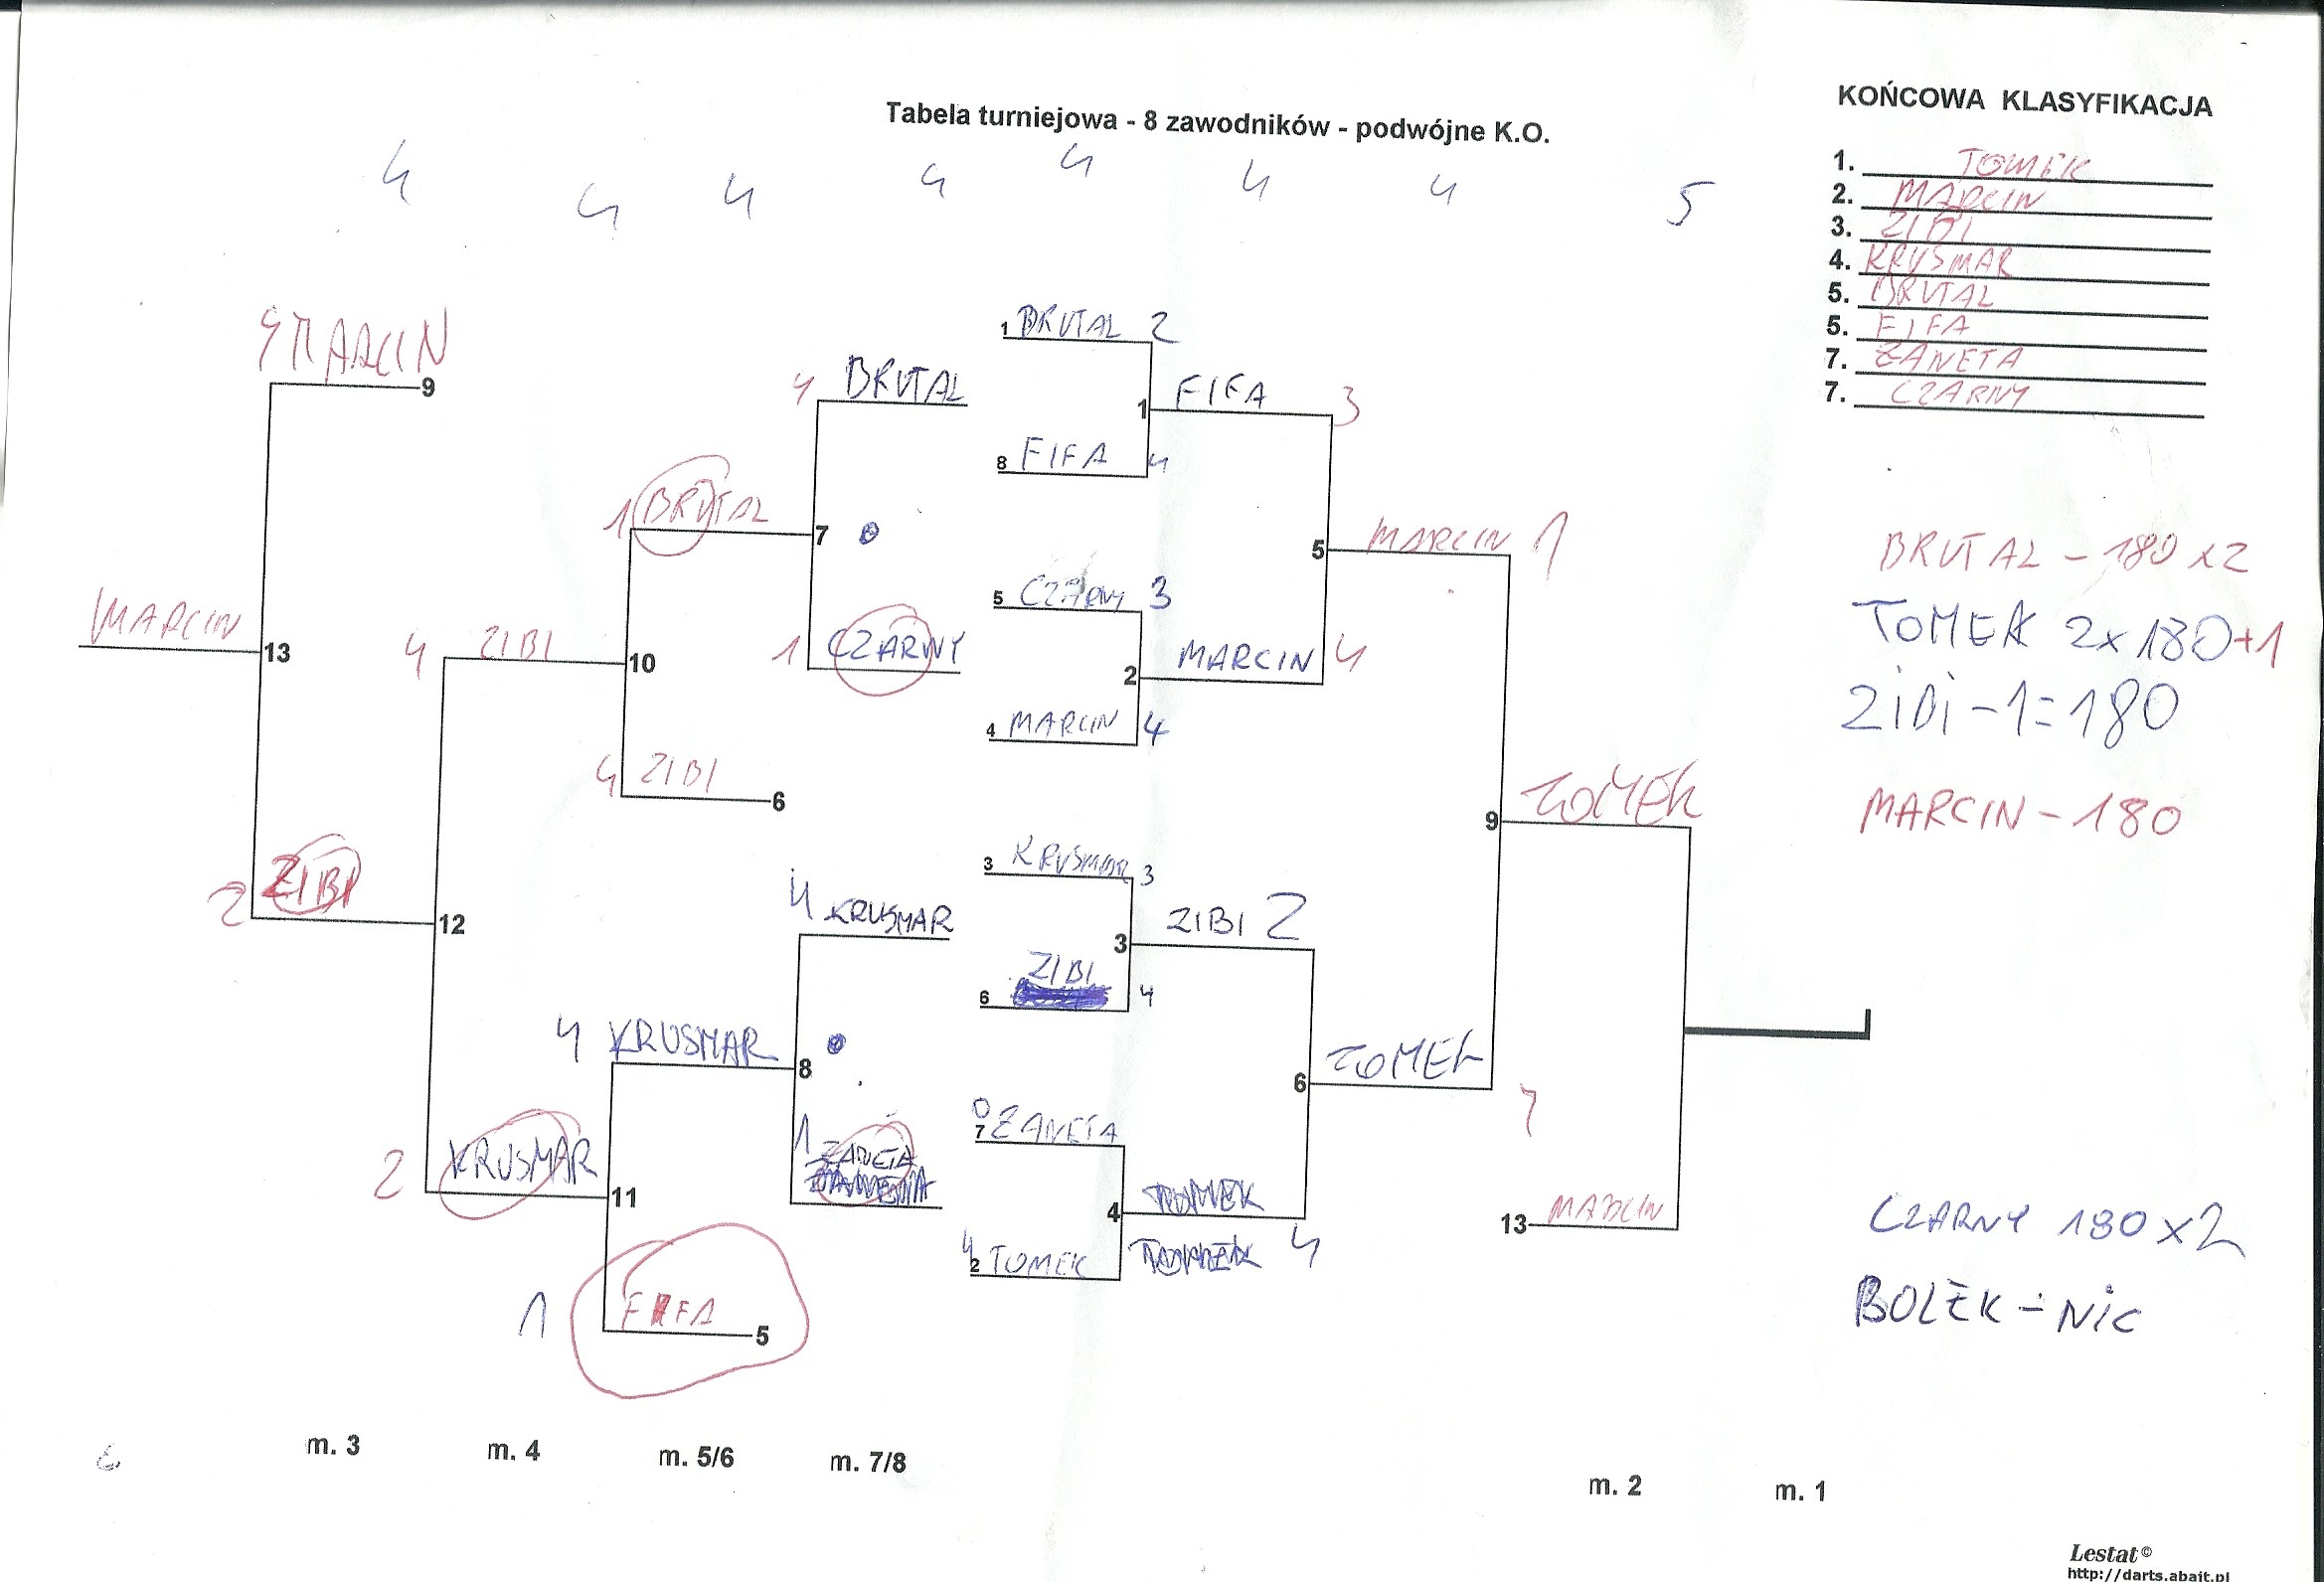 Tabela turniejowa - 8 zawodników - podwójne K.O.
4 4 4 4 4 4 4 5
KOŃCOWA KLASYFIKACJA
1. TOMEK
2. MARCIN
3. ZIBI
4. KRUSMAR
5. BRUTAL
5. FIFA
7. ŻANETA
7. CZARNY
4 MARCIN 9
MARCIN 13
2 ZIBI 12
4 ZIBI 10
2 KRUSMAR 11
1 BRUTAL 7
4 ZIBI 6
4 KRUSMAR 8
1 FIFA 5
4 BRUTAL
1 CZARNY
4 KRUSMAR
1 ŻANETA
1 BRUTAL 2
8 FIFA 4
5 CZARNY 3
4 MARCIN 4
3 KRUSMAR 3
6 ZIBI 4
7 ŻANETA 0
2 TOMEK 4
1 FIFA 3
2 MARCIN 4
3 ZIBI 2
4 TOMEK
TOMEK 4
5 MARCIN 1
6 TOMEK
9 TOMEK
13 MARCIN
BRUTAL - 180 x2
TOMEK 2x180+1
ZiBi - 1=180
MARCIN - 180
CZARNY 180 x2
BOLEK - NiC
m. 3
m. 4
m. 5/6
m. 7/8
m. 2
m. 1
Lestat©
http://darts.abait.pl